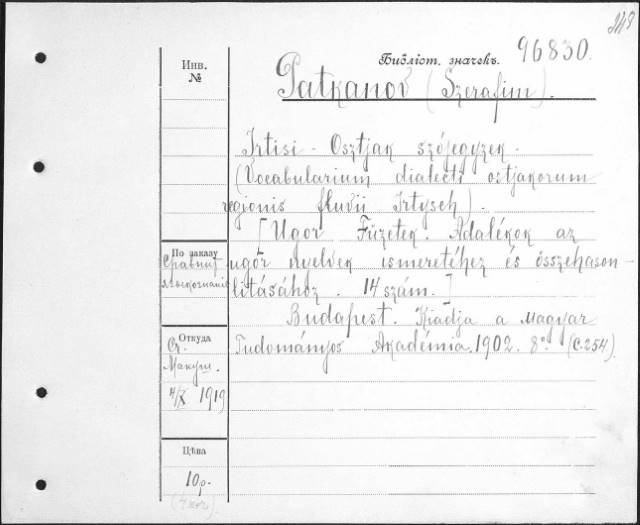 248
Библіот. значекъ. 96830.
Инв.
№
Patkanov (Szerafim).
Irtisi-Osztjak szójegyzek.
(Vocabularium dialecti ostjakorum
regionis fluvii Irtysch).
[Ugor Füzetek. Adalékok az
ugor nyelvek ismeretéhez és összehason-
lításához. 14 szám.]
Budapest. Kiadja a Magyar
Tudományos Akadémia. 1902. 8° (C.254).
По заказу
Сравнит
языкознание
Откуда
Макуш.
4/X 1919
Цѣна
10 р.